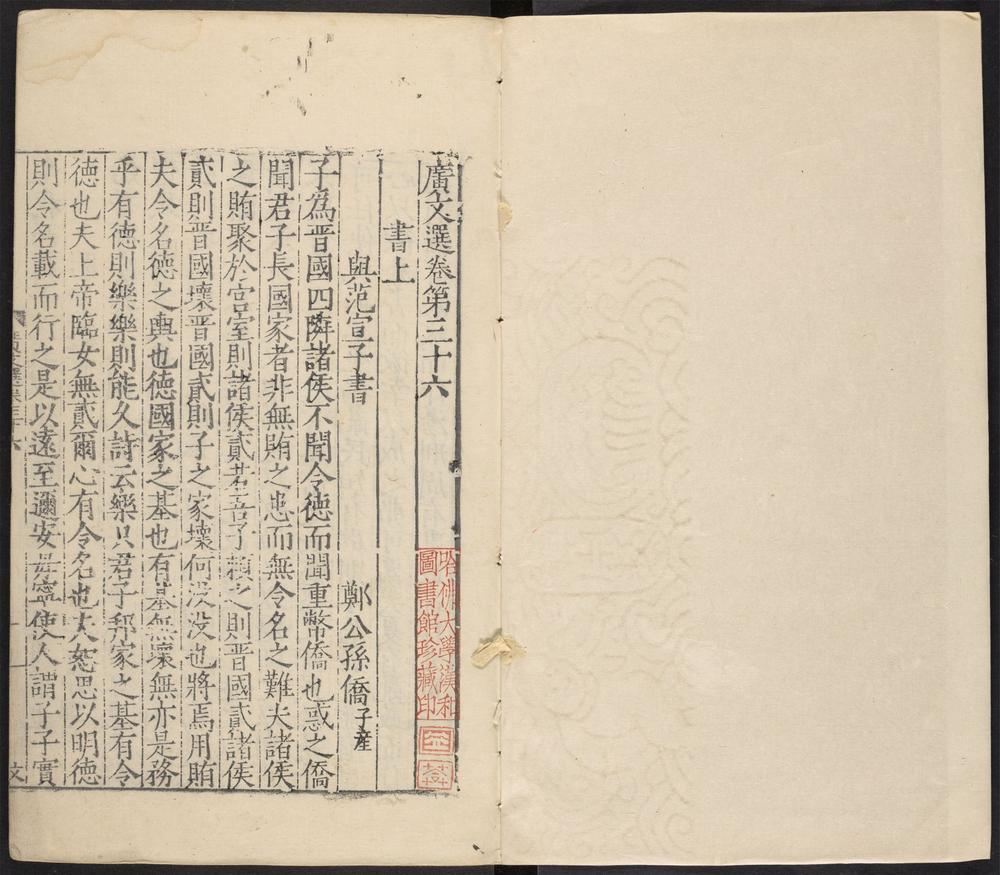 廣文選卷第三十六
書上
與范宣子書 鄭公孫僑子產
子為晋國四隣諸侯不聞令德而聞重幣僑也惑之僑
聞君子長國家者非無賄之患而無令名之難夫諸侯
之賄聚於宫室則諸侯貳若吾子頼之則晋國貳諸侯
貳則晋國壞晋國貳則子之家壞何没没也將焉用賄
夫令名德之輿也德國家之基也有基無壞無亦是務
乎有德則樂樂則能久詩云樂只君子邦家之基有令
德也夫上帝臨女無貳爾心有令名也夫恕思以明德
則令名載而行之是以遠至邇安毋寧使人謂子子實
哈佛大學漢和
圖書館珍藏印